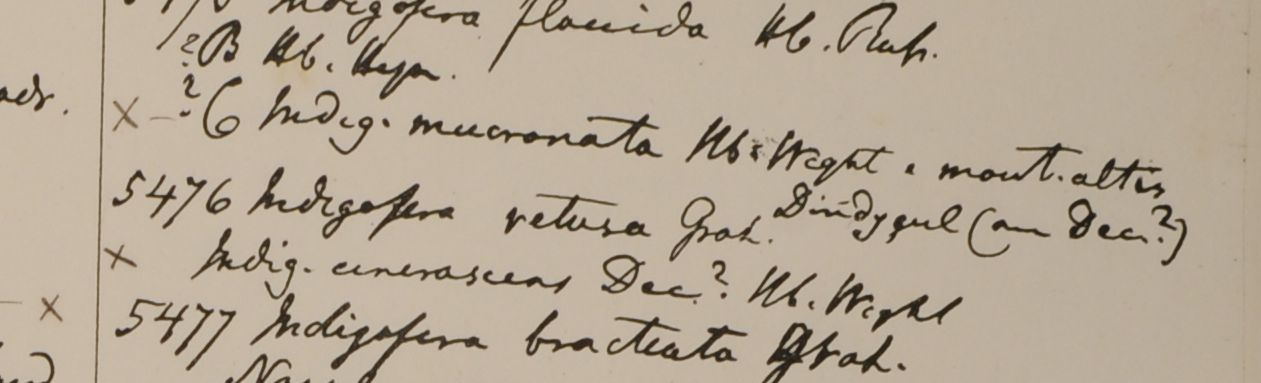 Indigofera flaccida Hb. Russ.
?B Hb. Heyn.
adr.
× - ?6 Indig. mucronata Hb. Wight e mont. altis
Dindygul (an Dec.?)
5476 Indigofera retusa Grah.
× Indig. cinerascens Dec.? Hb. Wight
×
5477 Indigofera bracteata Grah.